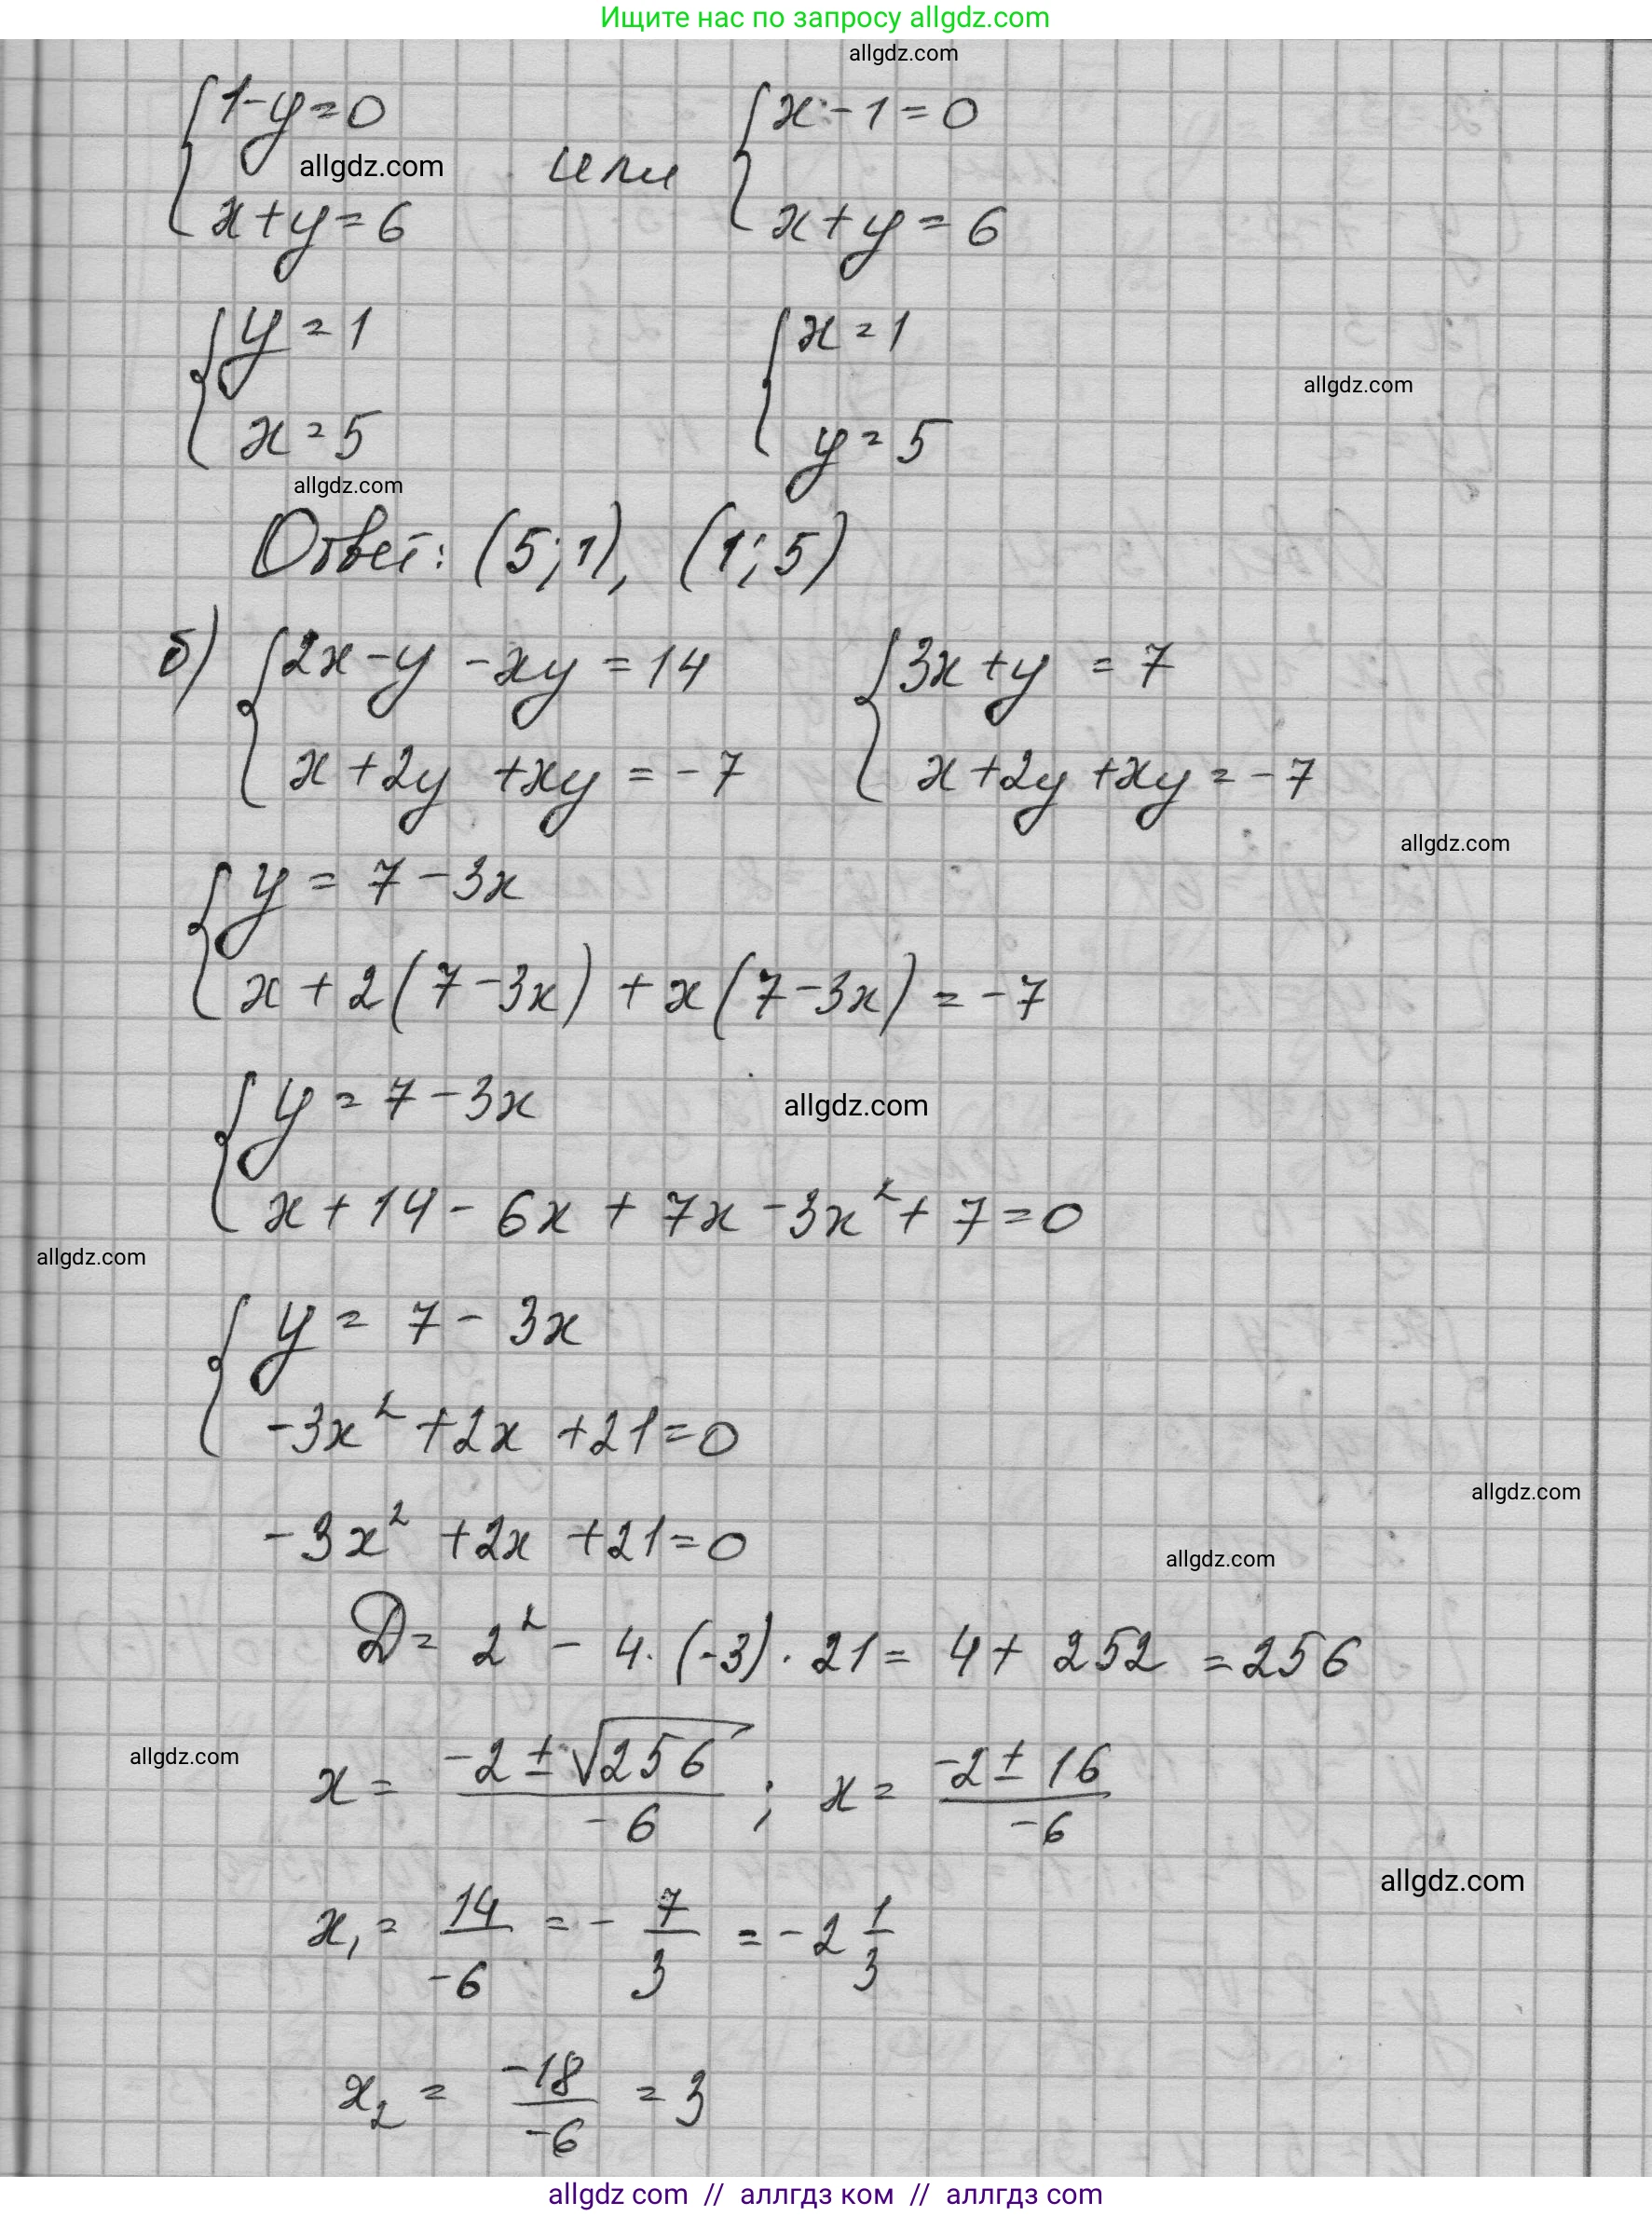 Ищите нас по запросу allgdz.com
allgdz.com
{1-y=0 или {x-1=0
allgdz.com
x+y=6 x+y=6
{y=1 {x=1
allgdz.com
x=5 y=5
allgdz.com
Ответ: (5;1), (1;5)
б) {2x-y-xy=14 {3x+y=7
x+2y+xy=-7 x+2y+xy=-7
allgdz.com
{y=7-3x
x+2(7-3x)+x(7-3x)=-7
{y=7-3x
allgdz.com
x+14-6x+7x-3x²+7=0
allgdz.com
{y=7-3x
-3x²+2x+21=0
allgdz.com
-3x²+2x+21=0
allgdz.com
D=2²-4·(-3)·21=4+252=256
allgdz.com
x=(-2±√256)/(-6); x=(-2±16)/(-6)
allgdz.com
x₁=14/(-6)=-7/3=-2 1/3
x₂=-18/(-6)=3
allgdz com // аллгдз ком // аллгдз com